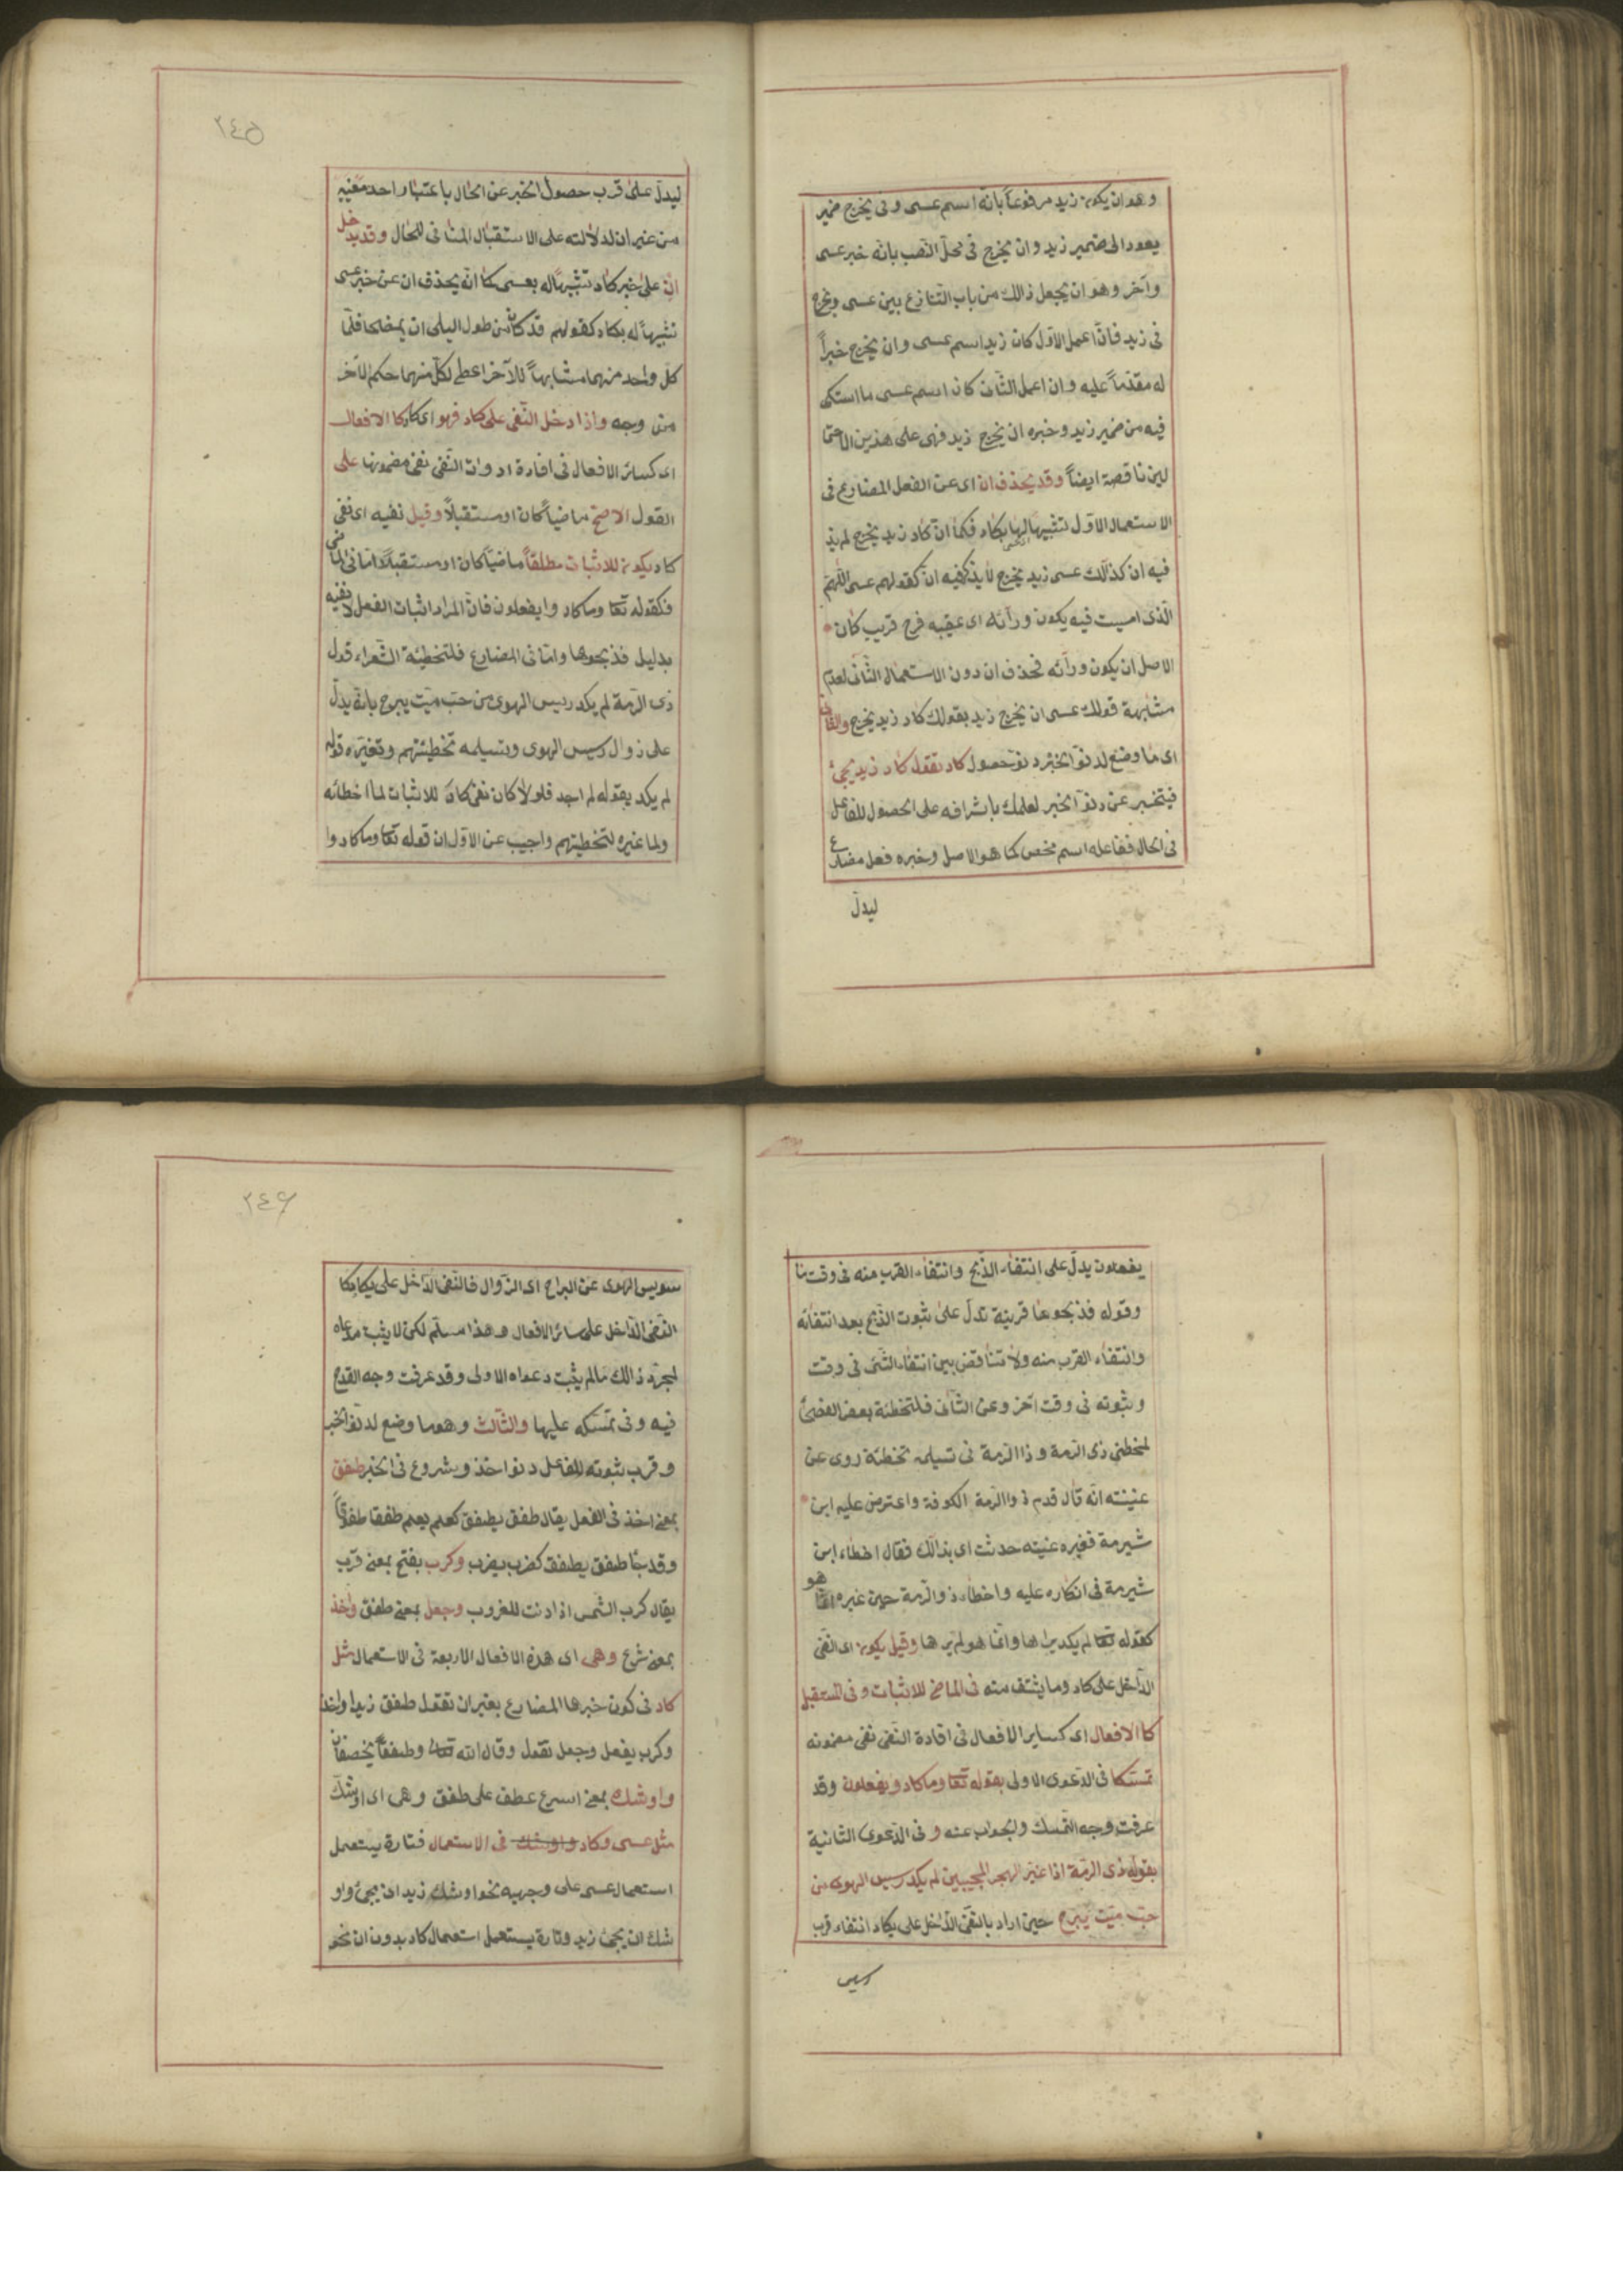 وهو ان يكون زيد مرفوعاً بانه اسم عسى وفى يخرج ضمير
يعود الى ضمير زيد وان يخرج فى محل النصب بانه خبر عسى
وآخر وهو ان يجعل ذالك من باب التنازع بين عسى ويخرج
فى زيد فان اعمل الاول كان زيد اسم عسى وان يخرج خبراً
له مقدماً عليه وان اعمل الثانى كان اسم عسى ما استكن
فيه من ضمير زيد وخبره ان يخرج زيد فهى على هذين الاحتما
لين ناقصة ايضاً وقد يحذف ان اى عن الفعل المضارع فى
الاستعمال الاول تشبيهاً لها بكاد فكما ان كاد زيد يخرج لم يذ
فيه ان كذلك عسى زيد يخرج لا يذكر فيه ان كقولهم عسى اللهم
الذى امسيت فيه يكون ورائه اى عقيبه فرج قريب كان
الاصل ان يكون ورائه فحذف ان دون الاستعمال الثانى لعدم
مشابهة قولك عسى ان يخرج زيد بقولك كاد زيد يخرج والثانى
اى ما وضع لدنو الخبر دنو حصول كاد تقول كاد زيد يجئ
فيتخبر عن دنو الخبر لعلمك باشرافه على الحصول للفاعل
فى الحال ففاعله اسم محض كما هو الاصل وخبره فعل مضارع
ليدل
٢٤٥
ليدل على قرب حصول الخبر عن الحال باعتبار احد معنييه
من غير ان لدلالته على الاستقبال المنافى للحال وقد يدخل
ان على خبر كاد تشبيهاً له بعسى كما انه يحذف ان عن خبر عسى
تشبيهاً له بكاد كقولهم قد كاد من طول البلى ان يمصحا فلما
كل واحد منهما مشابهاً للآخر اعطى لكل منهما حكم الآخر
من وجه واذا دخل النفى على كاد فهو اى كاد كا الافعال
اى كسائر الافعال فى افادة ادوات النفى نفى مضمونها على
القول الاصح ماضياً كان او مستقبلاً وقيل نفيه اى نفى
كاد يكون للاثبات مطلقاً ماضياً كان او مستقبلاً اما فى الماضى
فكقوله تعا وما كاد وا يفعلون فان المراد اثبات الفعل لا نفيه
بدليل فذبحوها واما فى المضارع فلتخطئة الشعراء قول
ذى الرمة لم يكد رسيس الهوى من حب ميت يبرح بانه يدل
على زوال رسيس الهوى وتسليمه تخطئتهم وتغيره قوله
لم يكد بقوله لم اجد فلولا كان نفى كاد للاثبات لما اخطائه
ولما غيره لتخطيتهم واجيب عن الاول ان قوله تعا وما كاد وا
يفعلون يدل على انتفاء الذبح وانتفاء القرب منه فى وقت ما
وقوله فذبحوها قرينة تدل على ثبوت الذبح بعد انتفائه
وانتفاء القرب منه ولا تناقض بين انتفاء الشئ فى وقت
وثبوته فى وقت آخر وعن الثانى فلتخطئة بعض الفصحا
لمخطئى ذى الرمة وذا الرمة فى تسليمه تخطئة روى عن
عنيسته انه قال قدم ذوا الرمة الكوفة واعترض عليه ابن
شبرمة فغيره عنيته حدثت ابى بذالك فقال اخطاء ابن
شبرمة فى انكاره عليه واخطاء ذو الرمة حين غيره انما هو
كقوله تعا لم يكد يراها وانما هو لم يرها وقيل يكون اى النفى
الداخل على كاد وما يشتق منه فى الماضى للاثبات وفى المستقبل
كا الافعال اى كساير الافعال فى افادة النفى نفى مضمونه
تمسكا فى الدعوى الاولى بقوله تعا وما كاد و يفعلون وقد
عرفت وجه التمسك والجواب عنه وفى الدعوى الثانية
بقول ذى الرمة اذا غير الهجر المحبين لم يكد رسيس الهوى من
حب ميت يبرح حين اراد بالنفى الداخل على يكاد انتفاء قرب
رسيس
٢٤٦
سويس الهوى عن البراح اى الزوال فالنفى الداخل على يكاد كا
النفى الداخل على سائر الافعال وهذا مسلم لكن لا يثبت مدعاه
لمجرد ذالك مالم يثبت دعواه الاولى وقد عرفت وجه القدح
فيه وفى تمسكه عليها والثالث وهو ما وضع لدنو الخبر
وقرب ثبوته للفاعل دنو اخذ وشروع فى الخبر طفق
بمعنى اخذ فى الفعل يقال طفق يطفق كعلم يعلم طفقا طفوقاً
وقد جا طفق يطفق كضرب يضرب وكرب بفتح بمعنى قرب
يقال كرب الشمس اذا دنت للغروب وجعل بمعنى طفق واخذ
بمعنى شرع وهى اى هذه الافعال الاربعة فى الاستعمال مثل
كاد فى كون خبرها المضارع بغير ان تقول طفق زيد واخذ
وكرب يفعل وجعل تقول وقال الله تعا وطفقا يخصفان
واوشك بمعنى اسرع عطف على طفق وهى اى اوشك
مثل عسى وكاد واوشك فى الاستعمال فتارة يستعمل
استعمال عسى على وجهيه نحو اوشك زيد ان يجئ واو
شك ان يجئ زيد وتارة يستعمل استعمال كاد بدون ان نحو